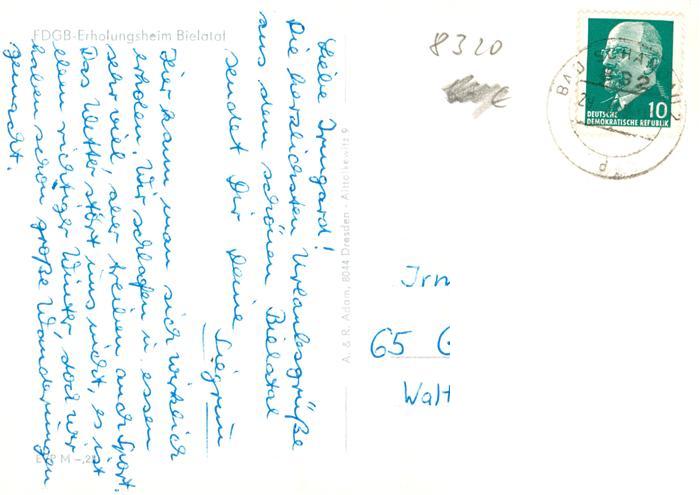 FDGB-Erholungsheim Bielatal
Liebe Irmgard!
Die herzlichsten Urlaubsgrüße
aus dem schönen Bielatal
sendet Dir Deine
Siegrun
Hier kann man sich wirklich
erholen. Wir schlafen u. essen
sehr viel, aber treiben auch Sport.
Das Wetter stört uns nicht, es ist
kein richtiger Winter, doch wir
haben schon große Wanderungen
gemacht.
EVP M -,25
A. & R. Adam, 8044 Dresden - Altlockwitz 9
8320
BAD SCHANDAU 2
832
d
DEUTSCHE
DEMOKRATISCHE REPUBLIK
10
Irm
65 G
Walt